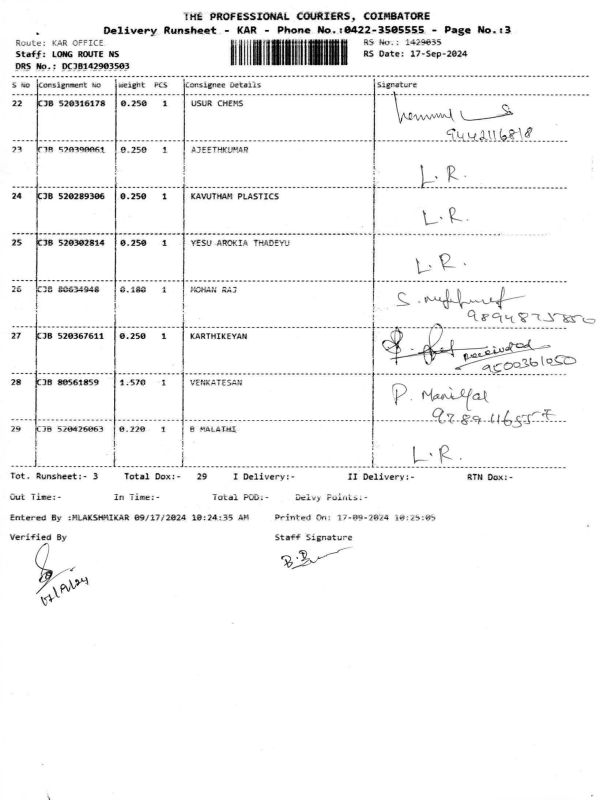 THE PROFESSIONAL COURIERS, COIMBATORE
Delivery Runsheet - KAR - Phone No.:0422-3505555 - Page No.:3
Route: KAR OFFICE RS No.: 1429035
Staff: LONG ROUTE NS RS Date: 17-Sep-2024
DRS No.: DCJB142903503
S No Consignment No Weight PCS Consignee Details Signature
22 CJB 520316178 0.250 1 USUR CHEMS
9442116818
23 CJB 520390061 0.250 1 AJEETHKUMAR
L.R.
24 CJB 520289306 0.250 1 KAVUTHAM PLASTICS
L.R.
25 CJB 520302814 0.250 1 YESU AROKIA THADEYU
L.R.
26 CJB 80634948 0.180 1 MOHAN RAJ
9894875850
27 CJB 520367611 0.250 1 KARTHIKEYAN
received
9500361050
28 CJB 80561859 1.570 1 VENKATESAN
P.
29 CJB 520426063 0.220 1 B MALATHI
L.R.
Tot. Runsheet:- 3 Total Dox:- 29 I Delivery:- II Delivery:- RTN Dox:-
Out Time:- In Time:- Total POD:- Delvy Points:-
Entered By :MLAKSHMIKAR 09/17/2024 10:24:35 AM Printed On: 17-09-2024 10:25:05
Verified By Staff Signature
17/9/24